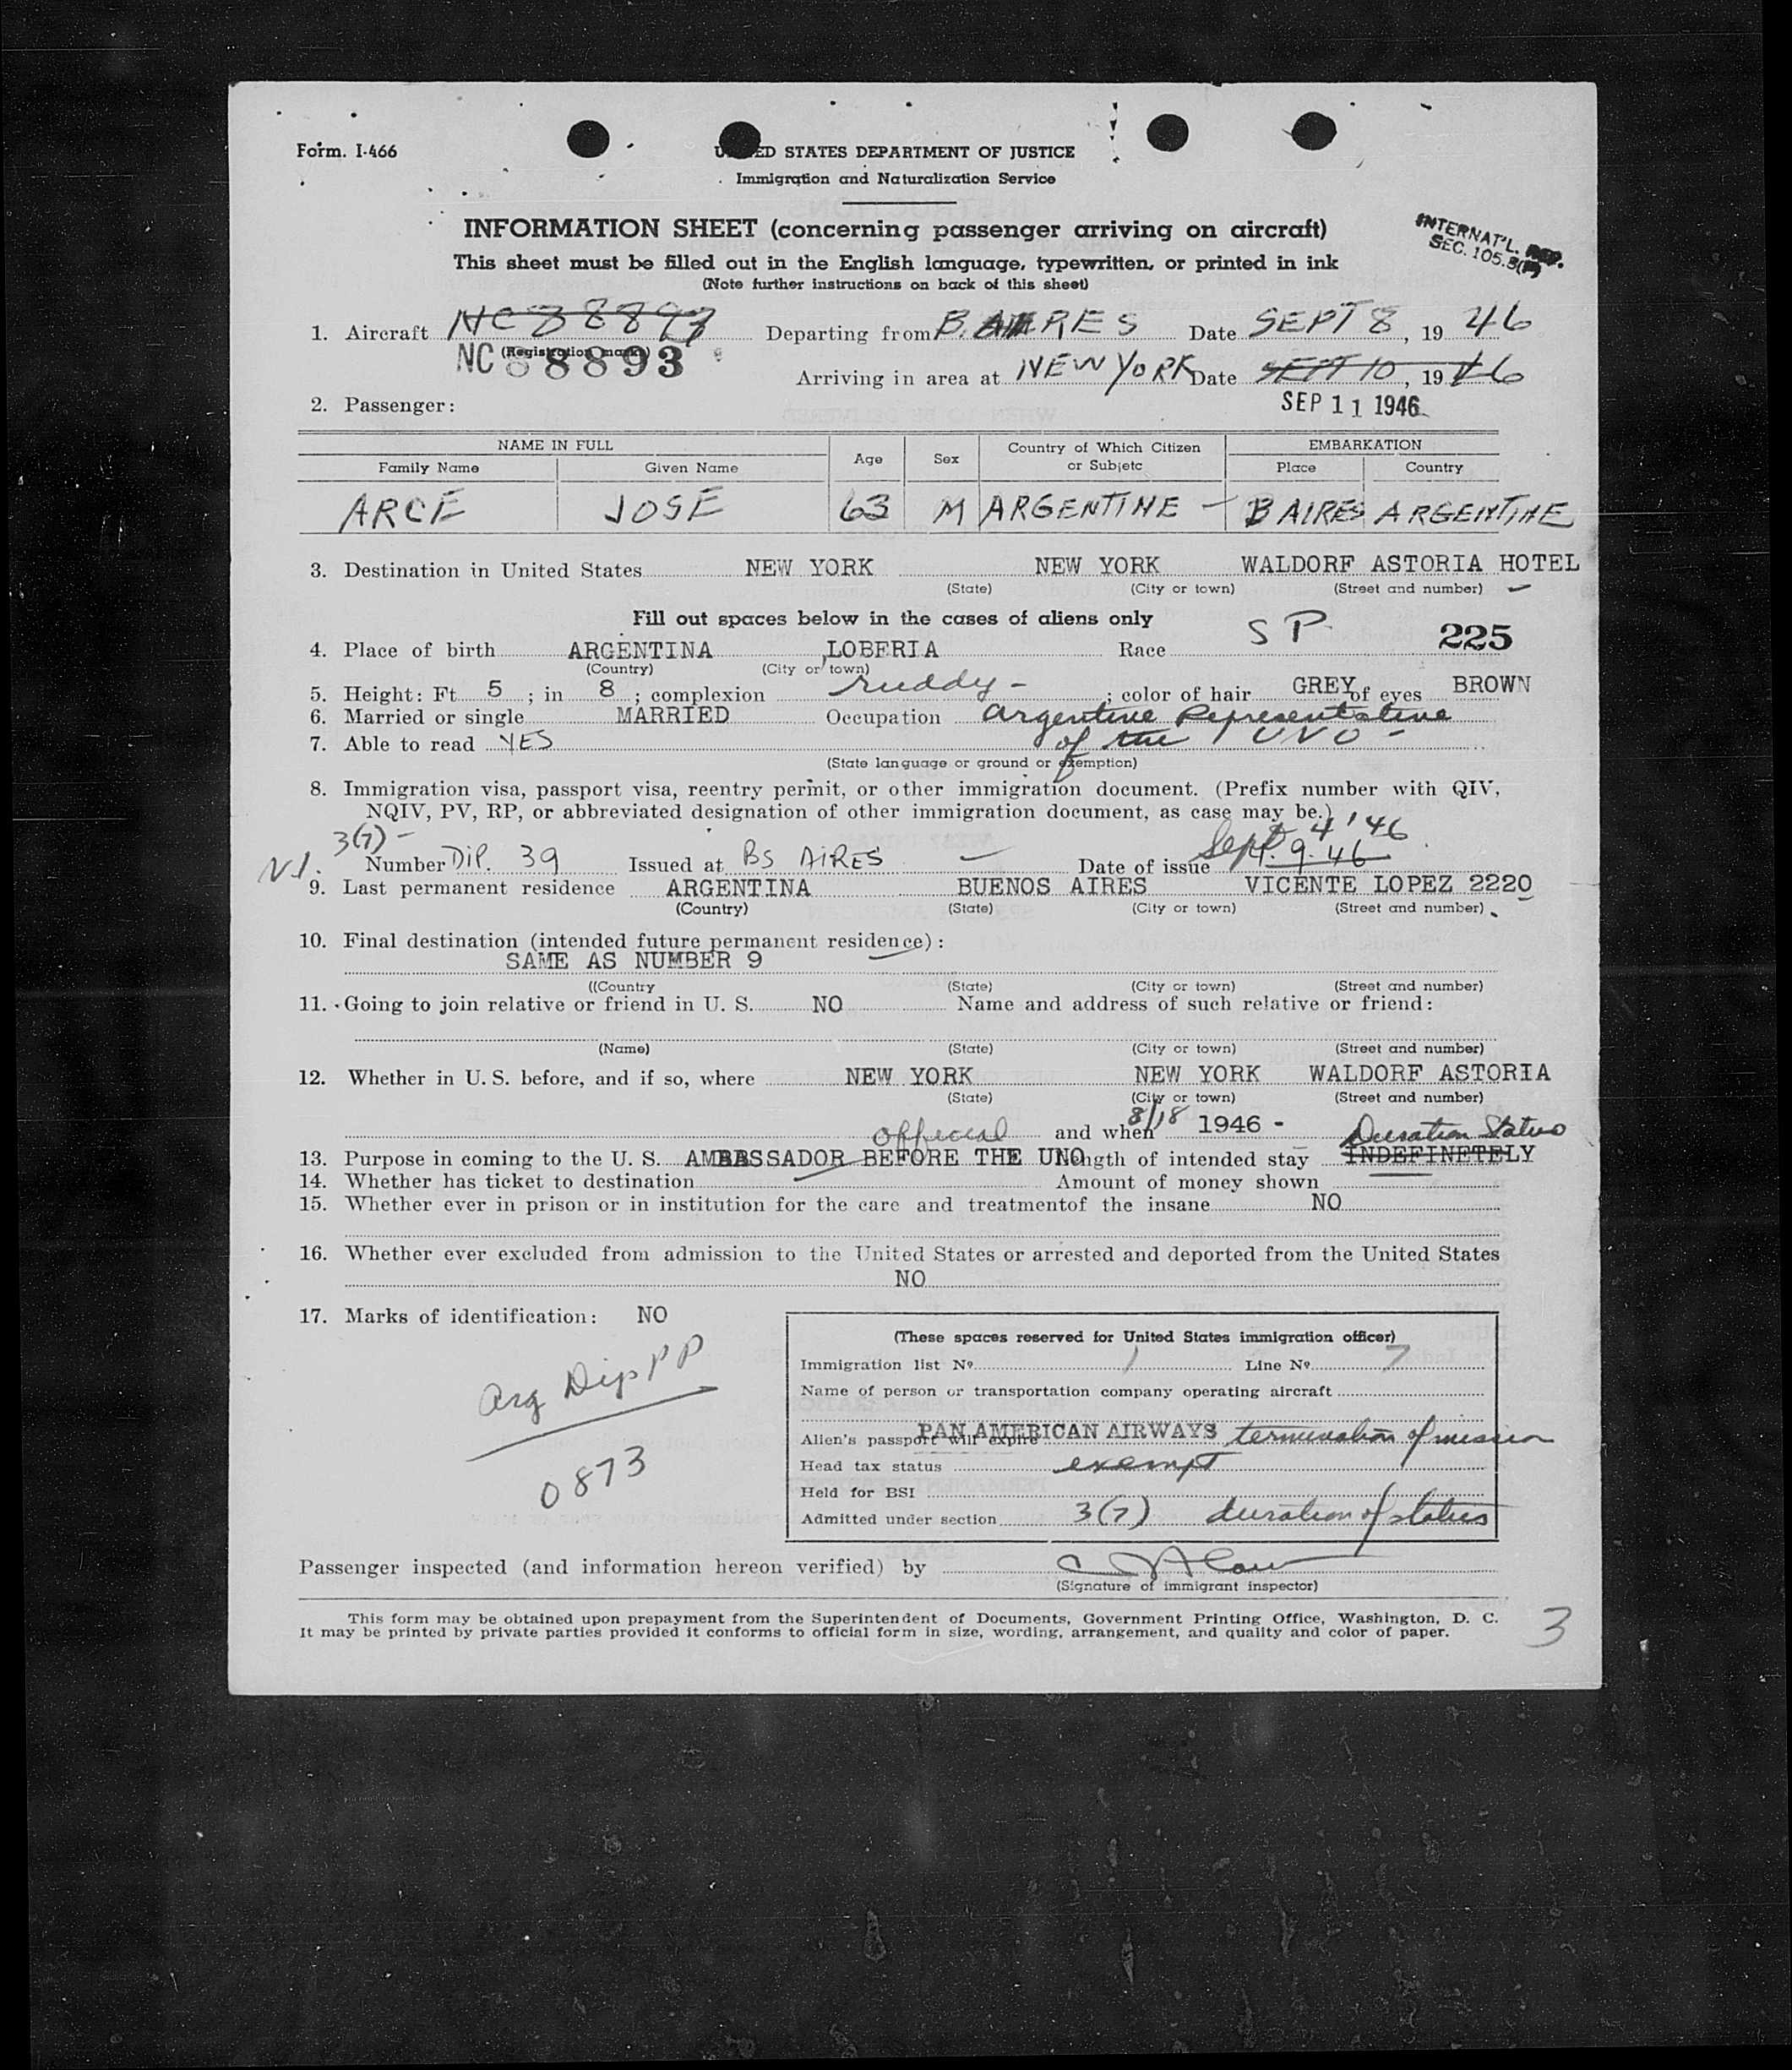 Form. I-466
UNITED STATES DEPARTMENT OF JUSTICE
Immigration and Naturalization Service
INFORMATION SHEET (concerning passenger arriving on aircraft)
INTERNAT'L. REP.
SEC. 105.3(F)
This sheet must be filled out in the English language, typewritten, or printed in ink
(Note further instructions on back of this sheet)
1. Aircraft NC 88893 Departing from B. AIRES Date SEPT 8, 19 46
(Registration marks)
NC 88893
Arriving in area at NEW YORK Date SEPT 10, 19 46
SEP 11 1946
2. Passenger:
NAME IN FULL Age Sex Country of Which Citizen or Subjetc EMBARKATION
Family Name Given Name Place Country
ARCE JOSE 63 M ARGENTINE - B AIRES ARGENTINE
3. Destination in United States NEW YORK NEW YORK WALDORF ASTORIA HOTEL
(State) (City or town) (Street and number)
Fill out spaces below in the cases of aliens only
4. Place of birth ARGENTINA LOBERIA Race SP 225
(Country) (City or town)
5. Height: Ft 5 ; in 8 ; complexion ruddy - ; color of hair GREY of eyes BROWN
6. Married or single MARRIED Occupation Argentine Representative
7. Able to read YES of the UNO -
(State language or ground or exemption)
8. Immigration visa, passport visa, reentry permit, or other immigration document. (Prefix number with QIV,
NQIV, PV, RP, or abbreviated designation of other immigration document, as case may be.)
3(7) - Sept 4 '46
Number DIP. 39 Issued at BS AIRES Date of issue 9. 46
9. Last permanent residence ARGENTINA BUENOS AIRES VICENTE LOPEZ 2220
(Country) (State) (City or town) (Street and number)
10. Final destination (intended future permanent residence):
SAME AS NUMBER 9
((Country (State) (City or town) (Street and number)
11. Going to join relative or friend in U. S. NO Name and address of such relative or friend:
(Name) (State) (City or town) (Street and number)
12. Whether in U. S. before, and if so, where NEW YORK NEW YORK WALDORF ASTORIA
(State) (City or town) (Street and number)
official and when 8/18 1946 - Duration Status
13. Purpose in coming to the U. S. AMBASSADOR BEFORE THE UNO Length of intended stay INDEFINETELY
14. Whether has ticket to destination Amount of money shown
15. Whether ever in prison or in institution for the care and treatmentof the insane NO
16. Whether ever excluded from admission to the United States or arrested and deported from the United States
NO
17. Marks of identification: NO
Arg Dip PP
0873
(These spaces reserved for United States immigration officer)
Immigration list Nº 1 Line Nº 7
Name of person or transportation company operating aircraft
PAN AMERICAN AIRWAYS
Alien's passport will expire termination of mission
Head tax status exempt
Held for BSI
Admitted under section 3(7) duration of status
Passenger inspected (and information hereon verified) by
(Signature of immigrant inspector)
This form may be obtained upon prepayment from the Superintendent of Documents, Government Printing Office, Washington, D. C.
It may be printed by private parties provided it conforms to official form in size, wording, arrangement, and quality and color of paper.
3